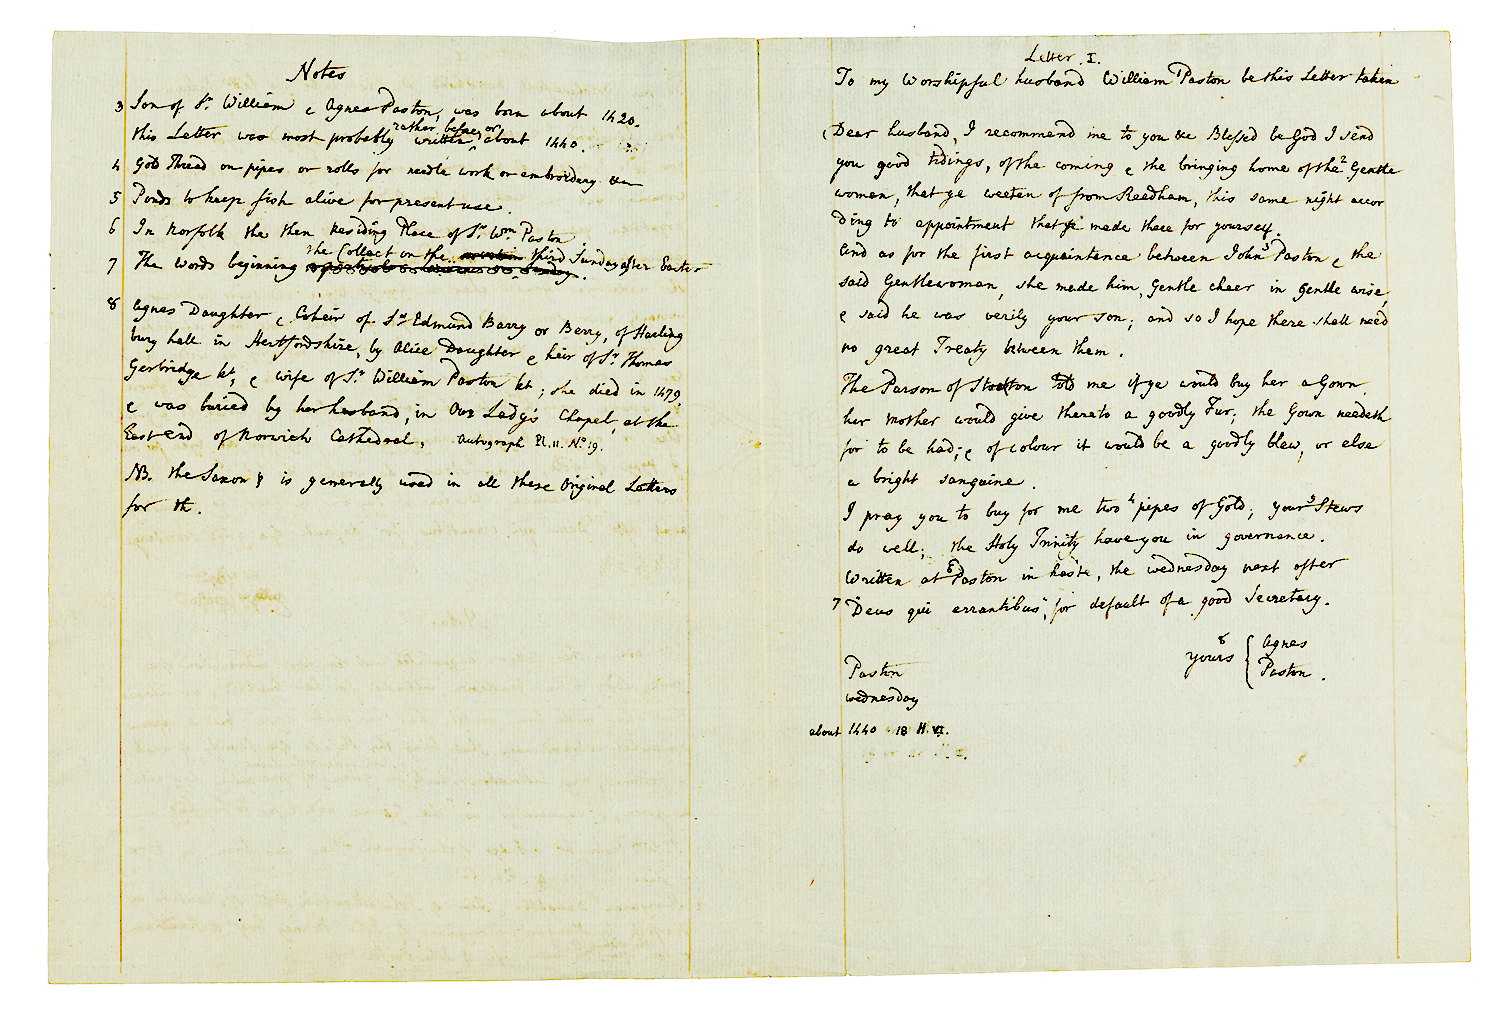 Notes
3 Son of Sr. William & Agnes Paston, was born about 1420.
this Letter was most probably rather before or written, about 1440.
4 Gold Thread on pipes or rolls for needle work or embroidery &c
5 Ponds to keep fish alive for present use.
6 In Norfolk the then Residing Place of Sr. Wm. Paston.
7 The words beginning the Collect on the third Sunday after Easter
8 Agnes Daughter & Coheir of Sr. Edmund Barry or Berry, of Harling
bury hall in Hertfordshire, by Alice Daughter & heir of Sr. Thomas
Gerbridge kt, & wife of Sr. William Paston kt; she died in 1479,
& was buried by her husband, in Our Lady's Chapel, at the
East end of Norwich Cathedral, Autograph Pl. II. No. 19.
NB. the Saxon þ is generally used in all these Original Letters
for th.
Letter I.
To my Worshipful husband William 1 Paston be this Letter taken
Dear husband, I recommend me to you &c Blessed be God I send
you good tidings, of the coming & the bringing home of the 2 Gentle
women, that ye weeten of from Reedham, this same night accor
ding to appointment that ye made there for yourself.
And as for the first acquaintance between John 3 Paston & the
said Gentlewoman, she made him, Gentle cheer in gentle wise,
& said he was verily your son; and so I hope there shall need
no great Treaty between them.
The Parson of Stockton told me if ye would buy her a Gown
her mother would give thereto a goodly Fur; the Gown needeth
for to be had; & of colour it would be a goodly blew, or else
a bright sanguine.
I pray you to buy for me two 4 pipes of Gold; your 5 Stews
do well; the Holy Trinity have you in governance.
Written at 6 Paston in haste, the wednesday next after
7 "Deus qui errantibus", for default of a good Secretary.
8 yours { Agnes
Paston.
Paston
wednesday
about 1440 18 H. VI.